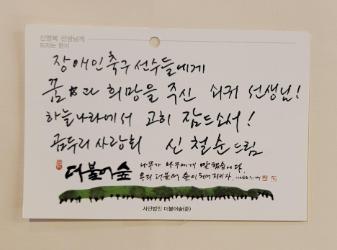 신영복 선생님께
드리는 편지
장애인축구선수들에게
꿈과 희망을 주신 쇠귀 선생님!
하늘나라에서 고히 잠드소서!
곰두리 사랑회 신철순드림
더불어숲
나무가 나무에게 말했습니다.
우리 더불어 숲이 되어 지키자.
사단법인 더불어숲(준)